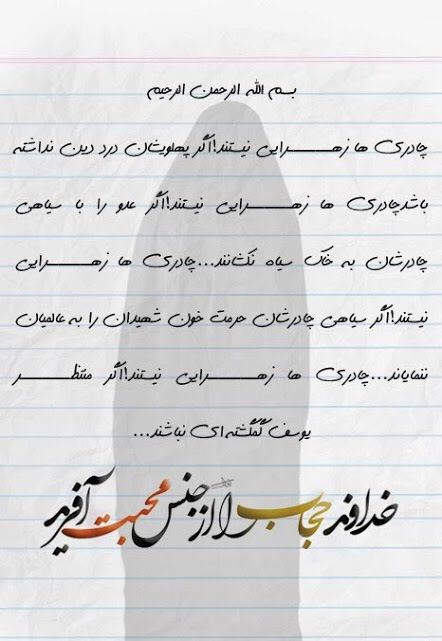 بسم الله الرحمن الرحیم
چادری ها زهـــرایی نیستند!اگر پهلویشان درد دین نداشته
باشدچادری ها زهـــرایی نیستند!اگر عدو را با سیاهی
چادرشان به خاک سیاه نکشانند...چادری ها زهـــرایی
نیستند!اگر سیاهی چادرشان حرمت خون شهیدان را به عالمیان
ننمایاند...چادری ها زهـــرایی نیستند!اگر منتظـــر
یوسف گمگشته‌ای نباشند...
خداوند حجاب را از جنس محبت آفرید